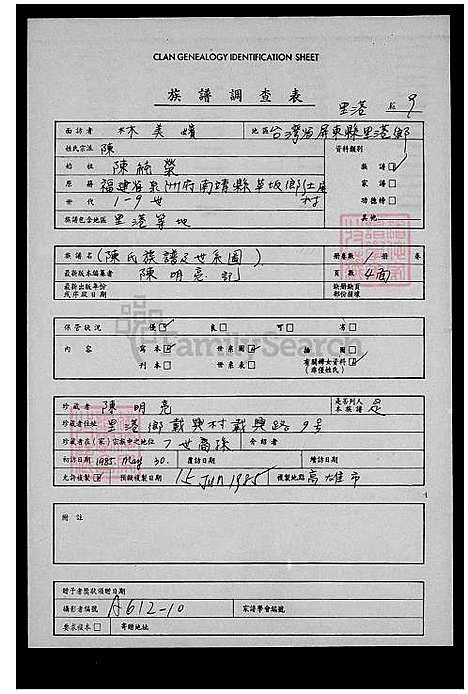 CLAN GENEALOGY IDENTIFICATION SHEET
族譜調查表
里港 9
面訪者 林美 地區 台灣省屏東縣里港鄉
姓氏宗派 陳 資料類別
始祖 陳純榮 族譜
原籍 福建省泉州府南靖縣草坂鄉 村 家譜
世代 1-9世 功德榜
族譜包含地區 里港等地 其他
族譜名 (陳氏族譜及世系圖) 冊卷數 1 卷
最新版本編纂者 陳明亮 記 頁數 4面
最新出版年份或序跋日期 缺冊缺頁部份描述
保管狀況 優 良 可 劣
內容 寫本 世系圖 插圖
刊本 世系表 有關婦女資料(非僅姓氏)
FamilySearch
珍藏者 陳明亮 是否列入本族譜 是
珍藏者住址 里港鄉載興村載興路9號
珍藏者在(家)宗族中之地位 7世裔孫 介紹者
初訪日期 1985. May 30. 覆訪日期 增訪日期
允許複製 預擬複製日期 15 Jun 1985 複製地點 高雄市
附註
贈予者獎狀頒贈日期
攝影者編號 A612-10 家譜學會編號
要求複本 寄贈地址